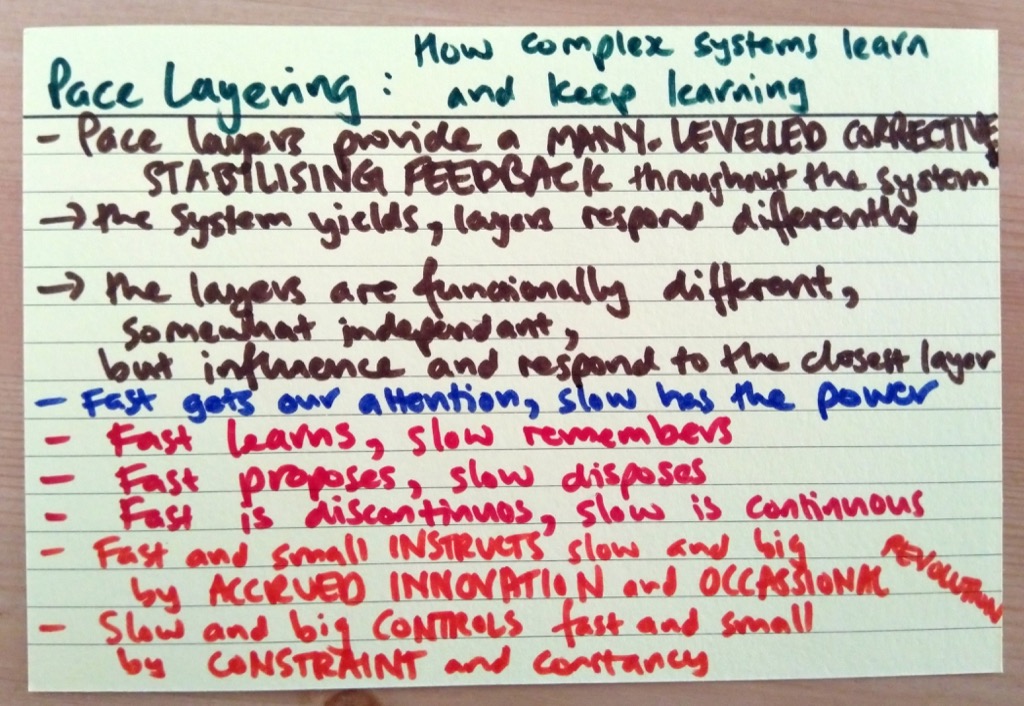 How complex systems learn
Pace Layering : and keep learning
- Pace layers provide a MANY-LEVELLED CORRECTIVE,
STABILISING FEEDBACK throughout the system
→ the system yields, layers respond differently
→ the layers are funcionally different,
somewhat independant,
but influence and respond to the closest layer
- Fast gets our attention, slow has the power
- Fast learns, slow remembers
- Fast proposes, slow disposes
- Fast is discontinuos, slow is continuous
- Fast and small INSTRUCTS slow and big
by ACCRUED INNOVATION and OCCASSIONAL REVOLUTION
- Slow and big CONTROLS fast and small
by CONSTRAINT and constancy